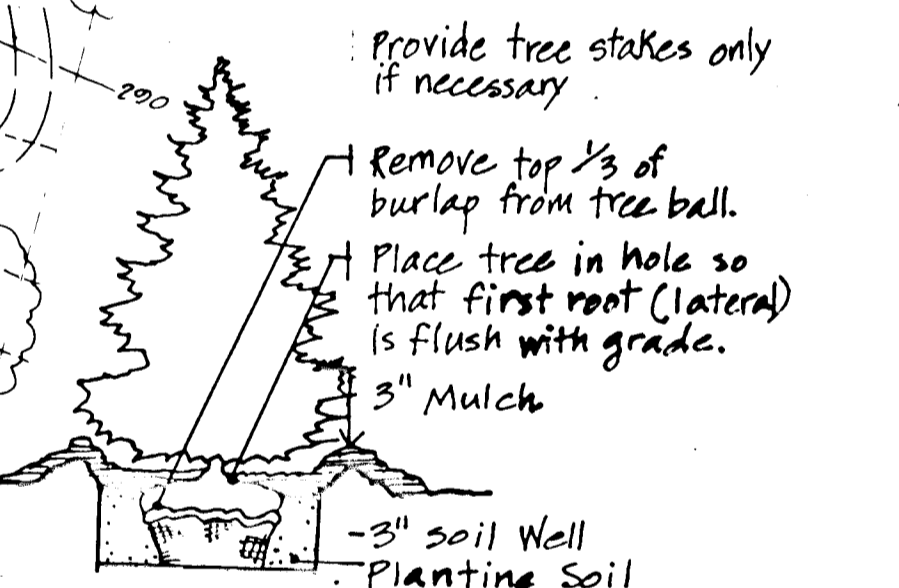 290
Provide tree stakes only
if necessary.
Remove top 1/3 of
burlap from tree ball.
Place tree in hole so
that first root (lateral)
is flush with grade.
3" Mulch
-3" Soil Well
Planting Soil